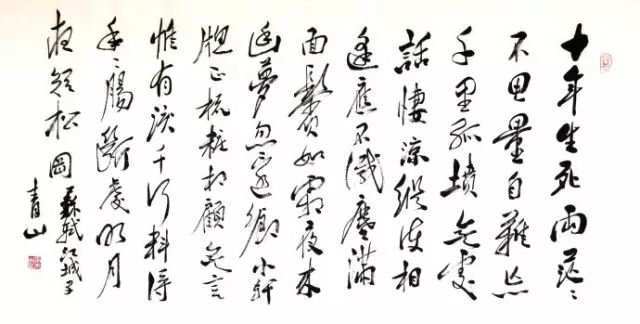 十年生死兩茫〻
不思量自難忘
千里孤墳無處
話悽涼縱使相
逢應不識塵滿
面鬢如霜夜來
幽夢忽還鄉小軒
牕正梳粧相顧無言
惟有淚千行料得
年〻腸斷處明月
夜短松岡 蘇軾江城子
青山